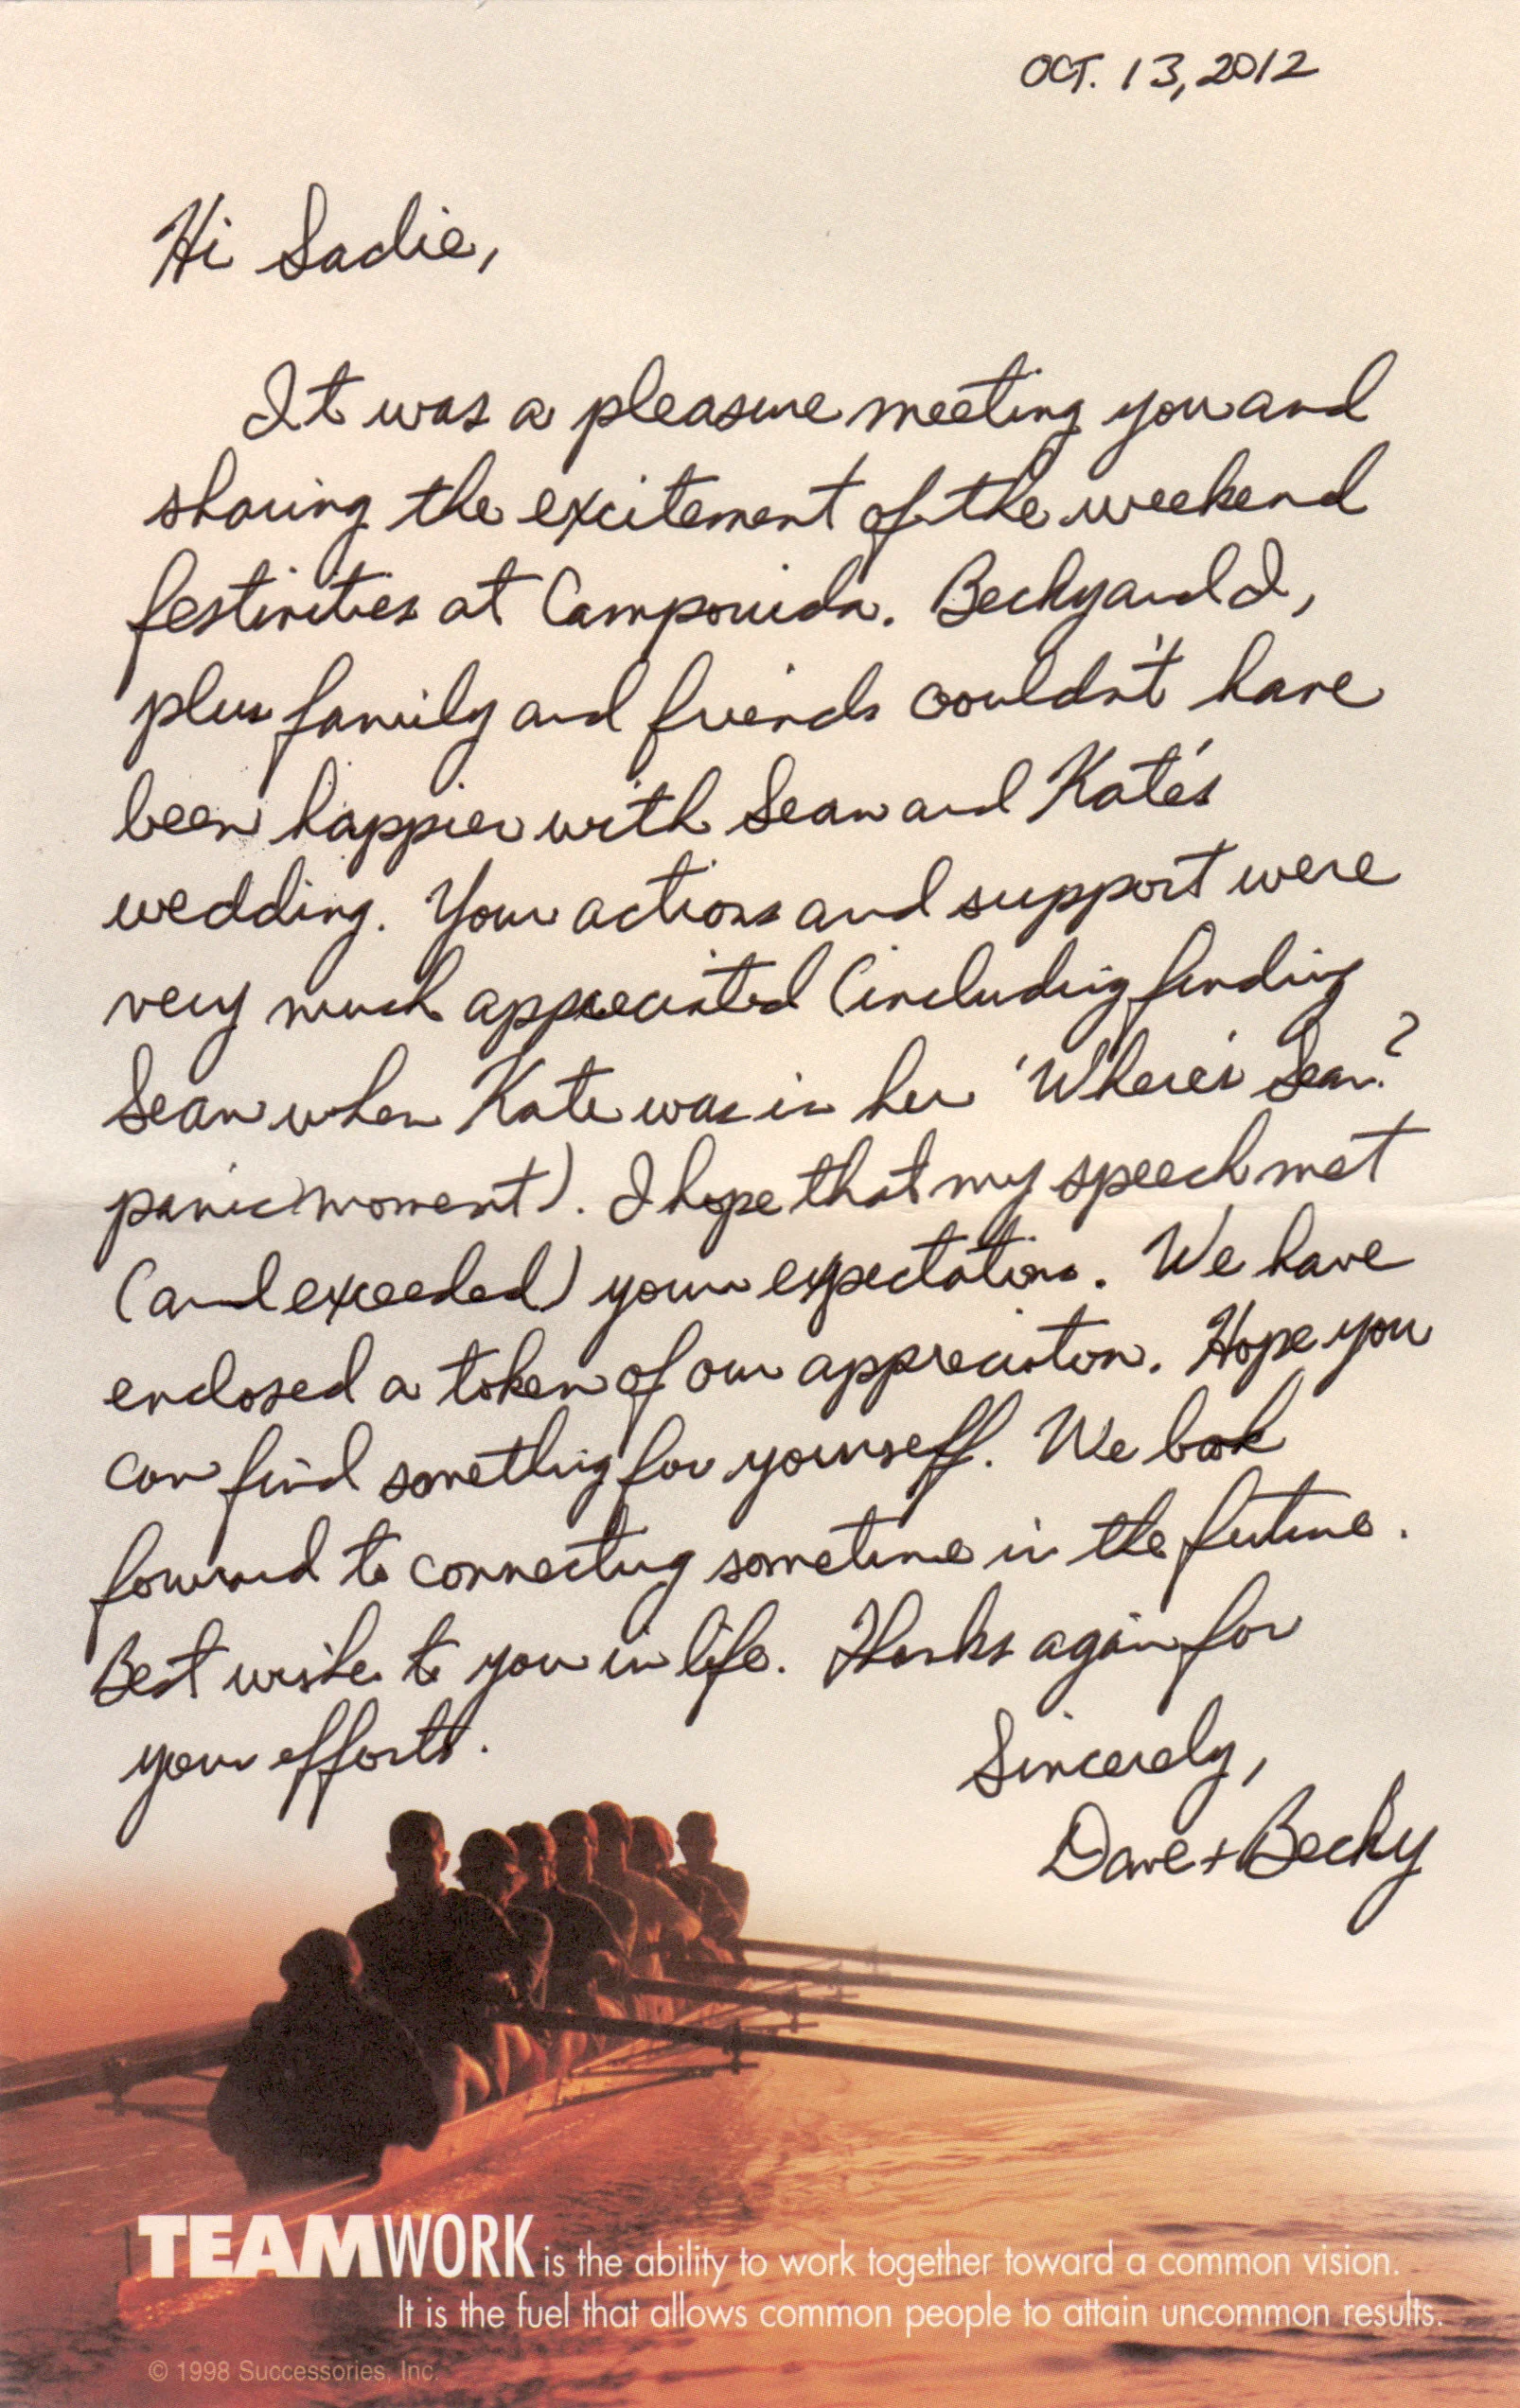 OCT. 13, 2012
Hi Sadie,
It was a pleasure meeting you and
sharing the excitement of the weekend
festivities at Campovida. Becky and I,
plus family and friends couldn't have
been happier with Sean and Kate's
wedding. Your actions and support were
very much appreciated (including finding
Sean when Kate was in her 'Where's Sean?'
panic moment). I hope that my speech met
(and exceeded) your expectations. We have
enclosed a token of our appreciation. Hope you
can find something for yourself. We look
forward to connecting sometime in the future.
Best wishes to you in life. Thanks again for
your efforts.
Sincerely,
Dave + Becky
TEAMWORK is the ability to work together toward a common vision.
It is the fuel that allows common people to attain uncommon results.
© 1998 Successories, Inc.